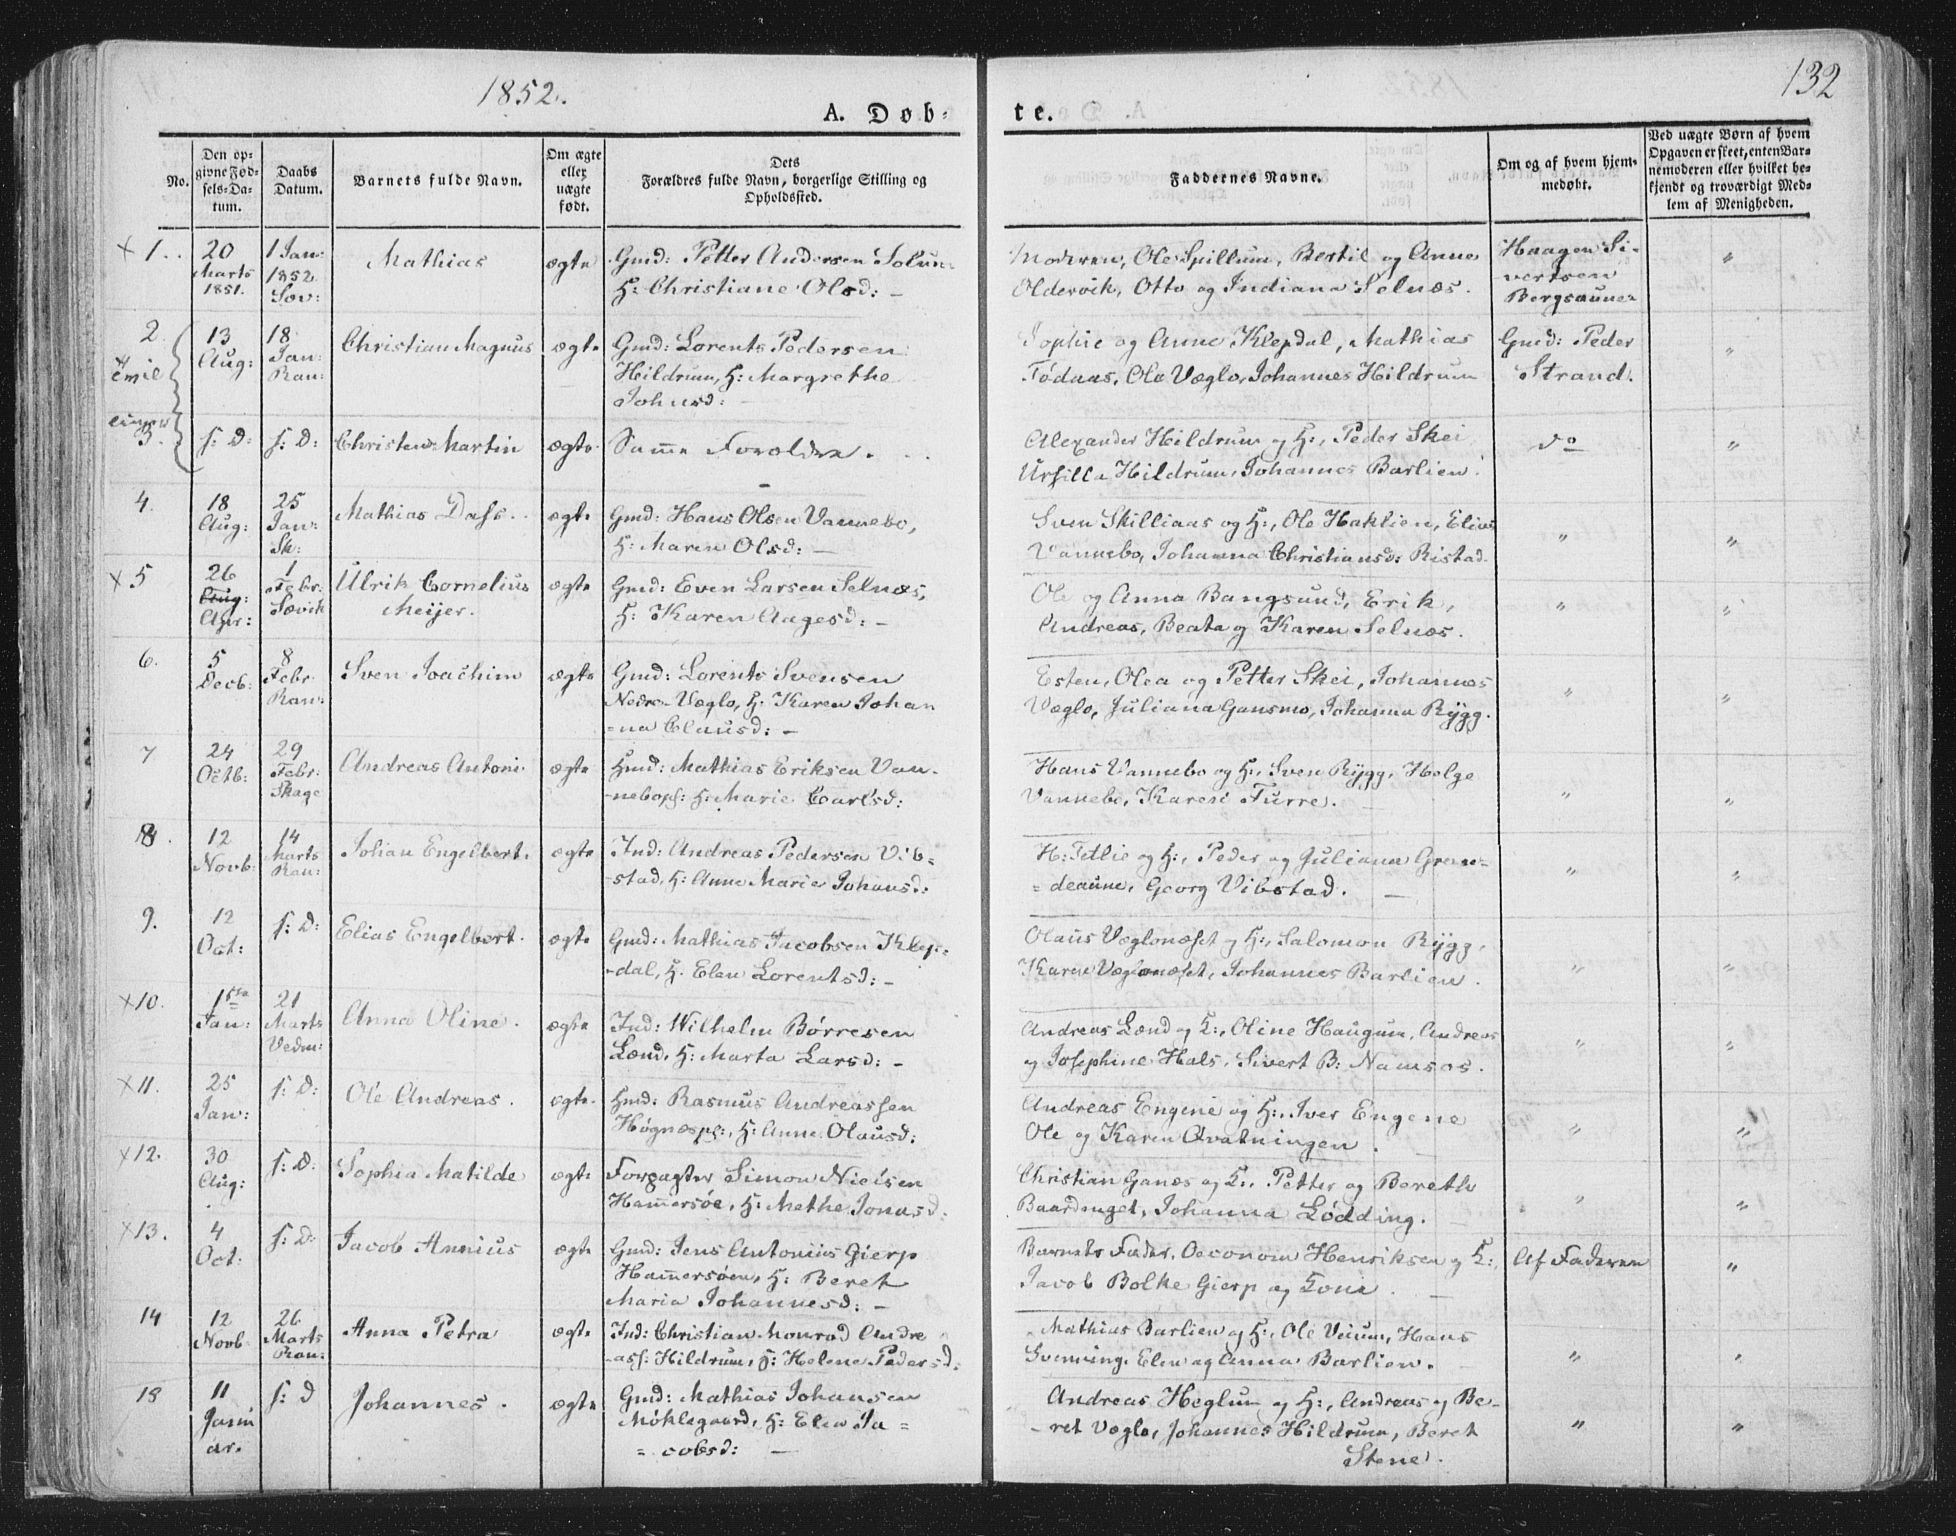 1852.
132
A. Døb-
te.
No.
Den op-
givne Fød-
sels-Da-
tum.
Daabs
Datum.
Barnets fulde Navn.
Om ægte
eller
uægte
født.
Dets
Forældres fulde Navn, borgerlige Stilling og
Opholdssted.
Faddernes Navne.
Om og af hvem hjem-
medøbt.
Ved uægte Børn af hvem
Opgaven er skeet, enten Bar-
nemoderen eller hvilket be-
kjendt og troværdigt Med-
lem af Menigheden.
x 1.
20
Marts
1851.
1 Jan:
1852
Søv:
Mathias
ægte
Gmd: Petter Andersen Solum
H: Christiane Olsd: -
Moderen, Ole Spillum, Bertil og Anne
Oldervik, Otto og Indiana Selnæs.
Haagen Si-
vertsen
Bergsaunet
"
2.
Emil
13
Aug:
18
Jan:
Ran:
Christian Magnus
ægte
Gmd: Lorents Pedersen
Hildrum, H: Margrethe
Johnsd:
Sophie og Anne Klepdal, Mathias
Fødnas, Ole Væglo, Johannes Hildrum
Gmd: Peder
Strand.
"
3.
s: D:
s: D:
Christen Martin
ægte
Samme Forældre.
Alexander Hildrum og H:, Peder Skei
Ursilla Hildrum, Johannes Barlien.
do
"
4.
18
Aug:
25
Jan:
Sk:
Mathias Dass.
ægte
Gmd: Hans Olsen Vannebo,
H: Maren Olsd: -
Sven Skilliaas og H:, Ole Haklien, Elias
Vannebo, Johanna Christiansd: Ristad.
"
"
x 5
26
Aug:
Apr:
1
Febr:
Sævik
Ulrik Cornelius
Meijer.
ægte
Gmd: Even Larsen Selnæs,
H: Karen Aagesd: -
Ole og Anna Bangsund, Erik,
Andreas, Beata og Karen Selnæs.
"
"
6.
5
Decb:
8
Febr.
Ran:
Sven Joachim
ægte
Gmd: Lorents Svensen
Nedre-Væglo, H: Karen Johan
-na Clausd: -
Esten, Olea og Petter Skei, Johannes
Væglo, Juliana Gansmo, Johanna Rygg.
"
"
7
24
Octb:
29
Febr:
Skage
Andreas Antoni.
ægte
Hmd: Mathias Eriksen Van-
-nebopl: H: Marie Carlsd:
Hans Vannebo og H:, Sven Rygg, Helge
Vannebo, Karen Furre.
"
"
8.
12
Novb:
14
Marts
Ran:
Johan Engelbert.
ægte
Ind: Andreas Pedersen Vib-
-stad, H: Anne Marie Johansd:
H: Tetlie og H:, Peder og Juliana Gren-
=deaune, Georg Vibstad.
"
"
9.
12
Oct:
s: D:
Elias Engelbert.
ægte
Gmd: Mathias Jacobsen Klep-
-dal, H: Elen Lorentsd: -
Olaus Væglonæset og H:, Salomon Rygg,
Karen Væglonæset, Johannes Barlien.
"
"
x 10.
1ste
Jan:
21
Marts
Vedm:
Anna Oline.
ægte
Ind: Wilhelm Børresen
Lænd, H: Marta Larsd: -
Andreas Lænd og H:, Oline Haugum, Andreas
og Josephine Hals, Sivert B: Namsos.
"
"
x 11.
25
Jan:
s: D:
Ole Andreas.
ægte
Hmd: Rasmus Andreassen
Høgnæspl:, H: Anne Olausd:
Andreas Engene og H:, Iver Engene
Ole og Karen Qvatningen.
"
"
x 12.
30
Aug:
s: D:
Sophia Matilde
ægte
Forpagter Simon Nielsen
Hammersøe, H: Methe Jonasd:
Christian Ganæs og H:, Petter og Bereth
Baardenget, Johanna Lødding.
"
"
x 13.
4
Oct:
s: D:
Jacob Annius
ægte
Gmd: Jens Antonius Gierp
Hammersøen, H: Beret
Maria Johannesd: -
Barnets Fader, Oeconom Henriksen og H:,
Jacob Bolke Gierp og Kone.
Af Faderen
"
14
12
Novb
26
Marts
Ran:
Anna Petra
ægte
Ind: Christian Monrad Andre
-ass: Hildrum, H: Helene Pedersd:
Mathias Barlien og H:, Ole Veium, Hans
Svenning, Elen og Anna Barlien.
"
"
15
11
Janu
ar.
s: D
Johannes.
ægte
Gmd: Mathias Johansen
Møklegaard, H: Elen Ja=
=cobsd: -
Andreas Heglum og H:, Andreas og Be-
-ret Væglo, Johannes Hildrum, Beret
Stene.
"
"